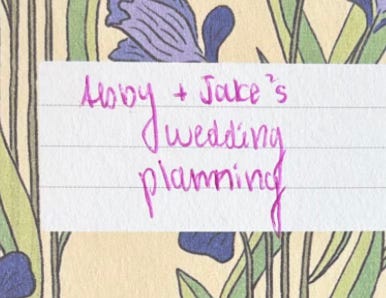 Abby + Jake's
wedding
planning